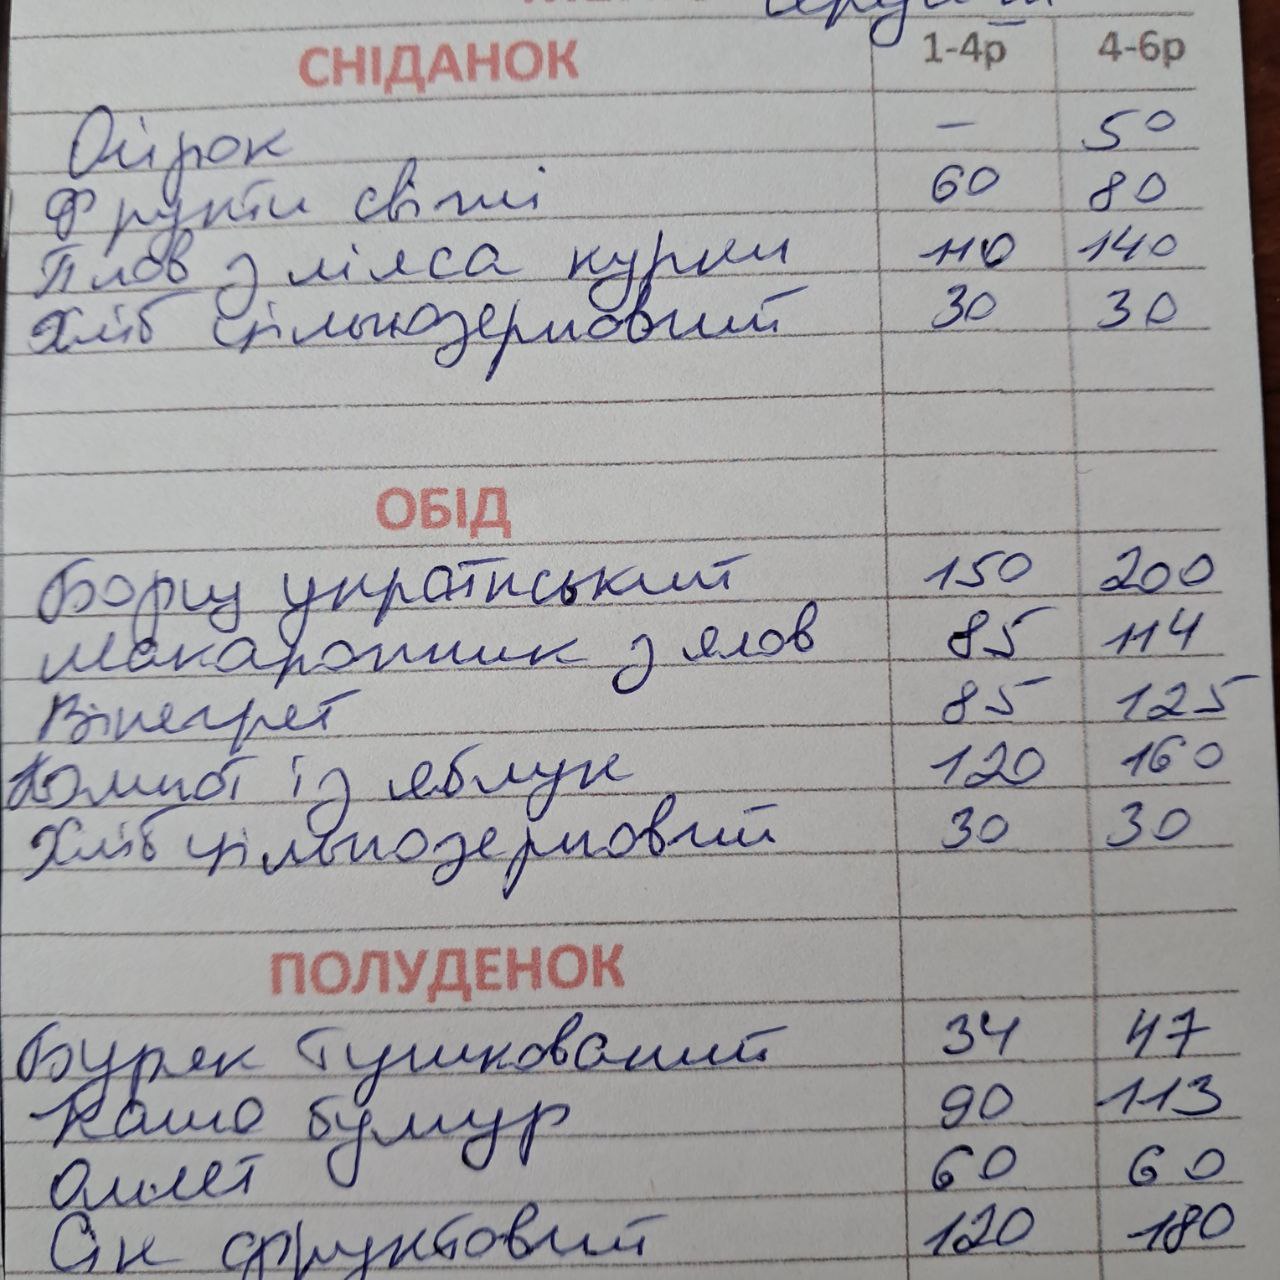 СНІДАНОК 1-4р 4-6р
Огірок - 50
Фрукти свіжі 60 80
Плов з мяса курки 110 140
Хліб цільнозерновий 30 30
ОБІД
Борщ український 150 200
Макаронник з ялов 85 114
Вінегрет 85 125
Компот із яблук 120 160
Хліб цільнозерновий 30 30
ПОЛУДЕНОК
Буряк тушкований 34 47
Каша булгур 90 113
Омлет 60 60
Сік фруктовий 120 180